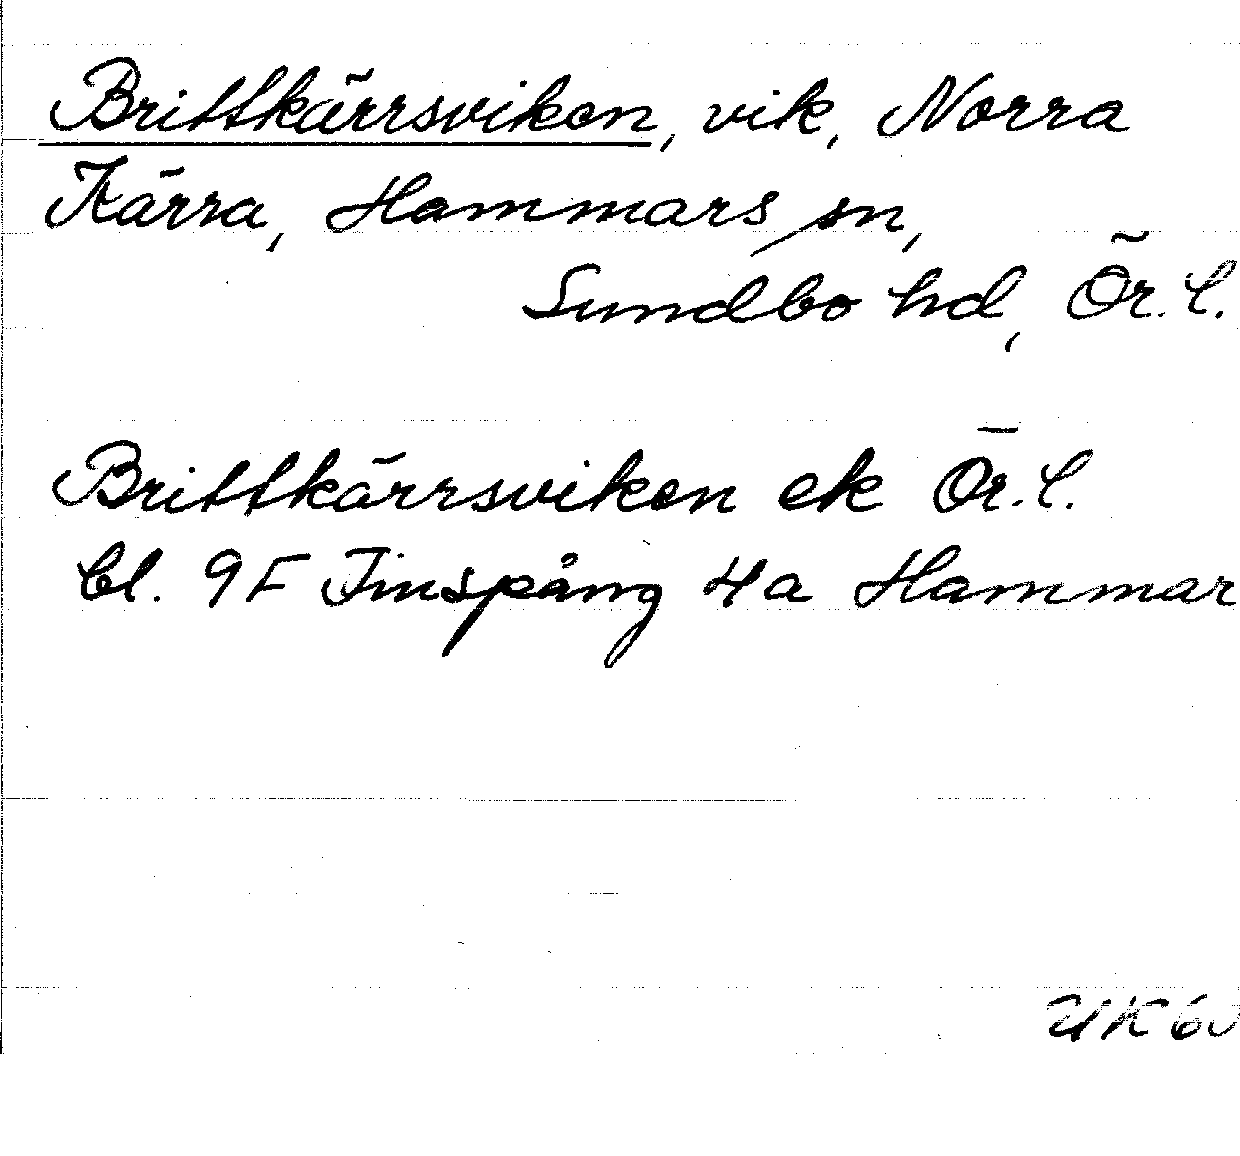 Brittkärrsviken, vik, Norra
Kärra, Hammars sn,
Sundbo hd, Ör. l.
Brittkärrsviken ek Ör. l.
bl. 9F Finspång 4a Hammar
UK 60